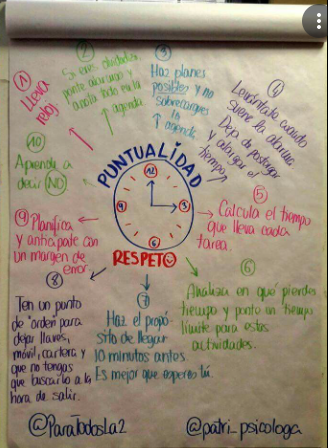 ① Lleva
reloj
②
Si eres olvidadizo,
ponte alarmas y
anota todo en la
agenda
③
Haz planes
posibles y no
sobrecargues
la agenda
④
Levántate cuando
suene la alarma.
Deja de postergar
y alargar el
tiempo
⑤
Calcula el tiempo
que lleva cada
tarea.
⑥
Analiza en qué pierdes
tiempo y ponte un tiempo
límite para estas
actividades.
⑦
Haz el propó
sito de llegar
10 minutos antes.
Es mejor que esperes tú.
⑧
Ten un punto
de "orden" para
dejar llaves,
móvil, cartera y
que no tengas
que buscarlo a la
hora de salir.
⑨ Planifica
y anticípate con
un margen de
error
⑩
Aprende a
decir NO
PUNTUALIDAD
12
9 3
6
RESPETO
@ParaTodosLa2 @patri_psicologa